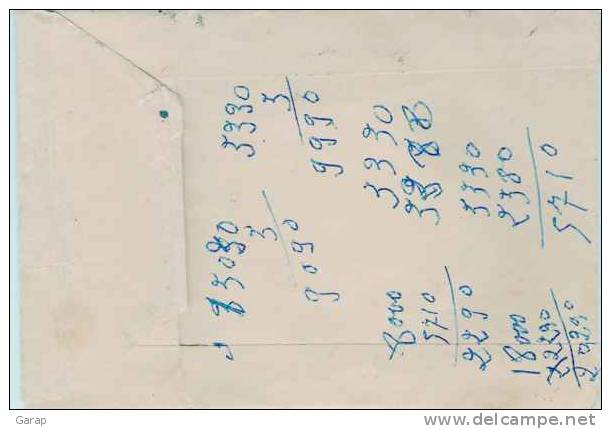 3030
3
9090
3330
3
9990
3330
8000
5710
2290
3330
2380
5710
18000
2290
20,290
Garap
www.delcampe.net